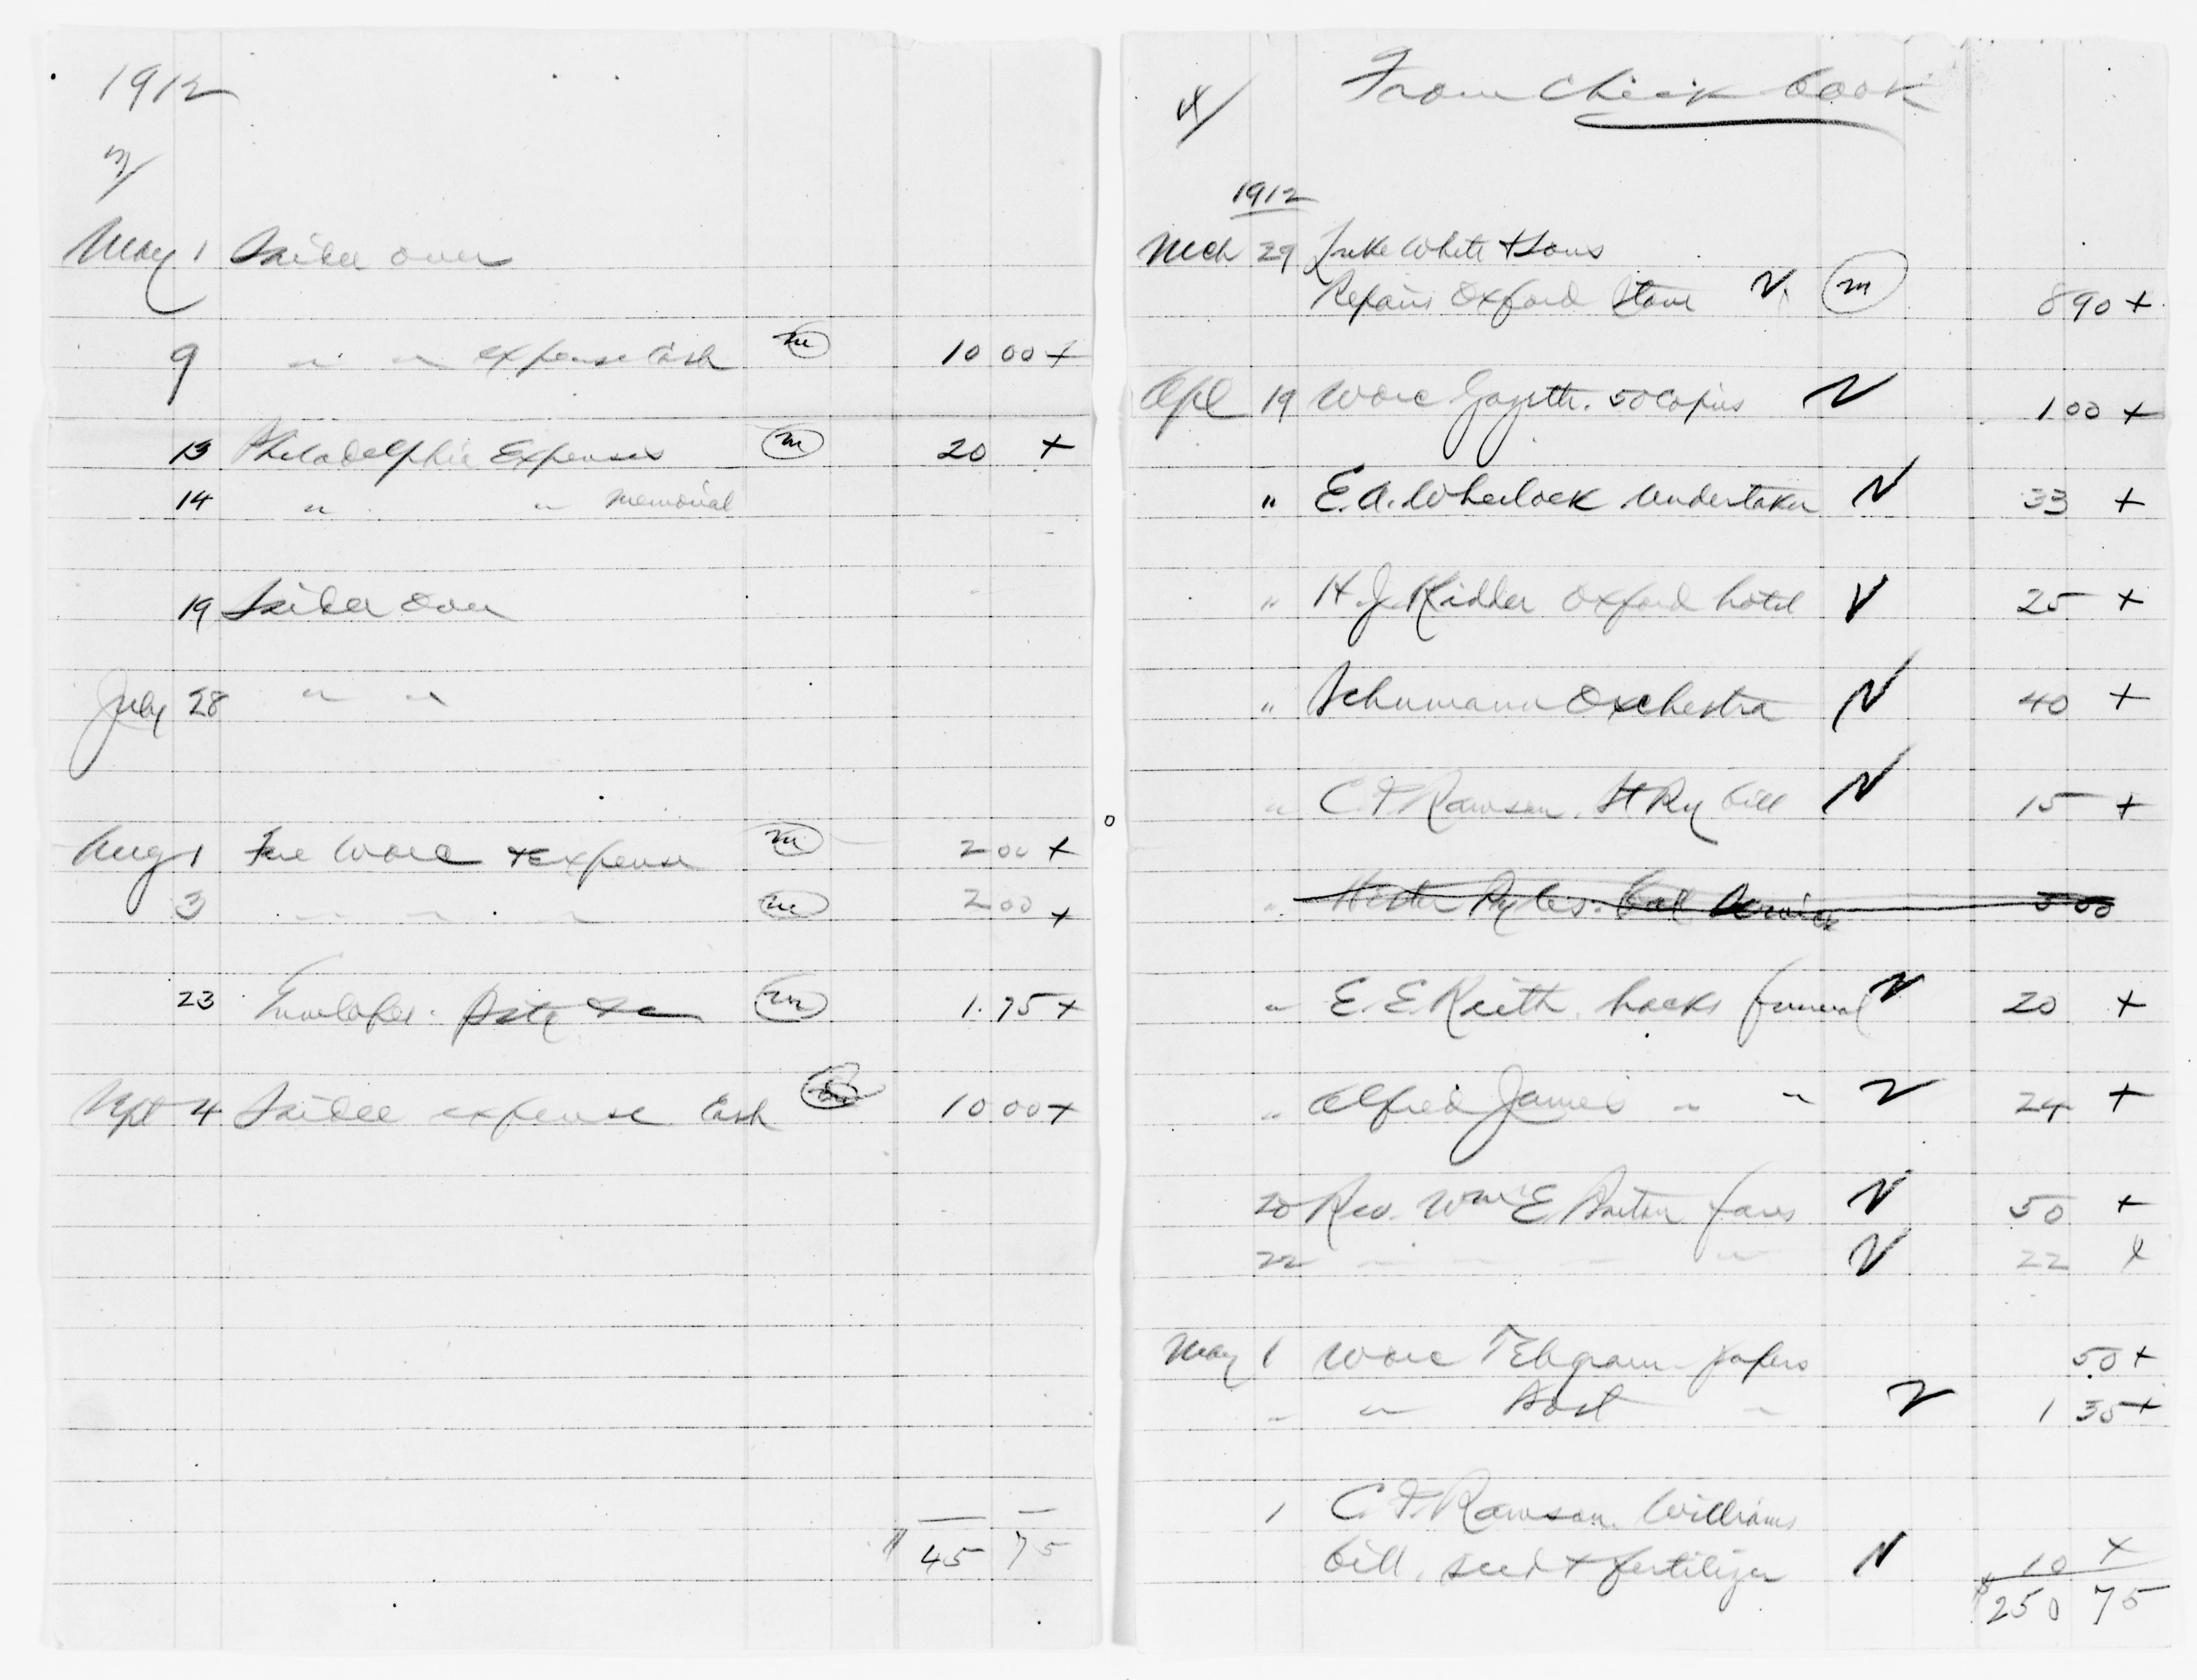 1912
3/
May 1
9 " " expense Cash m 10 00 +
13 Philadelphia Expenses m 20 +
14 " " memorial
19
July 28 " "
Aug 1 Worc + Expense m 2 00 +
3 " " " " m 2 00 +
23 Envelopes. m 1.75 +
Sept 4 expense Cash 10 00 +
$45 75
4/ From Check book
1912
Mch 29 White + Sons
Repairs Oxford Stove m 8 90 +
Apl 19 Worc Gazette. 50 Copies 1 00 +
" E. A. Wheelock Undertaker 33 +
" H. J. Kidder Oxford hotel 25 +
" Schumann Orchestra 40 +
" C. F. Rawson. St Ry bill 15 +
5 00
" E. E. Keith. hacks funeral 20 +
" Alfred James " " 24 +
20 Rev. Wm E Barton fares 50 +
22 " " " " 22 +
May 1 Worc Telegram papers 50 +
" " Post " 1 35 +
1 C. F. Rawson. Williams
bill. seed + fertilizer 10 +
$250 75